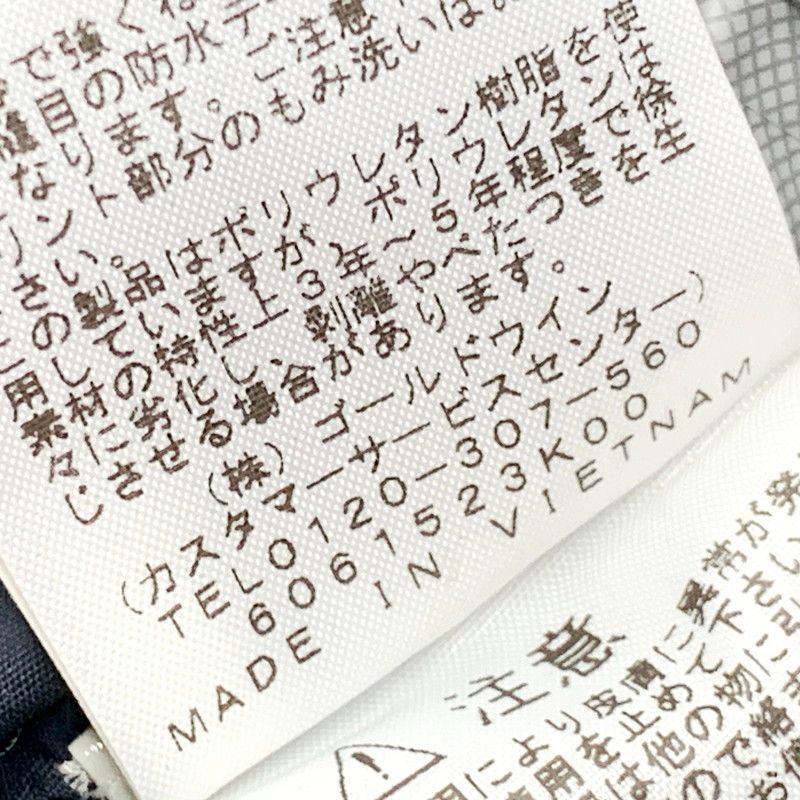 で強く
縫目の防水テ
なります。ご注意
ント部分のもみ洗いは
さい。
の製品はポリウレタン樹脂を使
用しています。ポリウレタンは
素材の特性上、3年~5年程度で徐
々に劣化し、剥離やべたつきを生
じさせる場合があります。
(株)ゴールドウイン
(カスタマーサービスセンター)
TEL0120-307-560
6061523K00
MADE IN VIETNAM
注意
用により皮膚に異常が発
使用を止めて下さい
は他の物に引
ので絡ま
お使